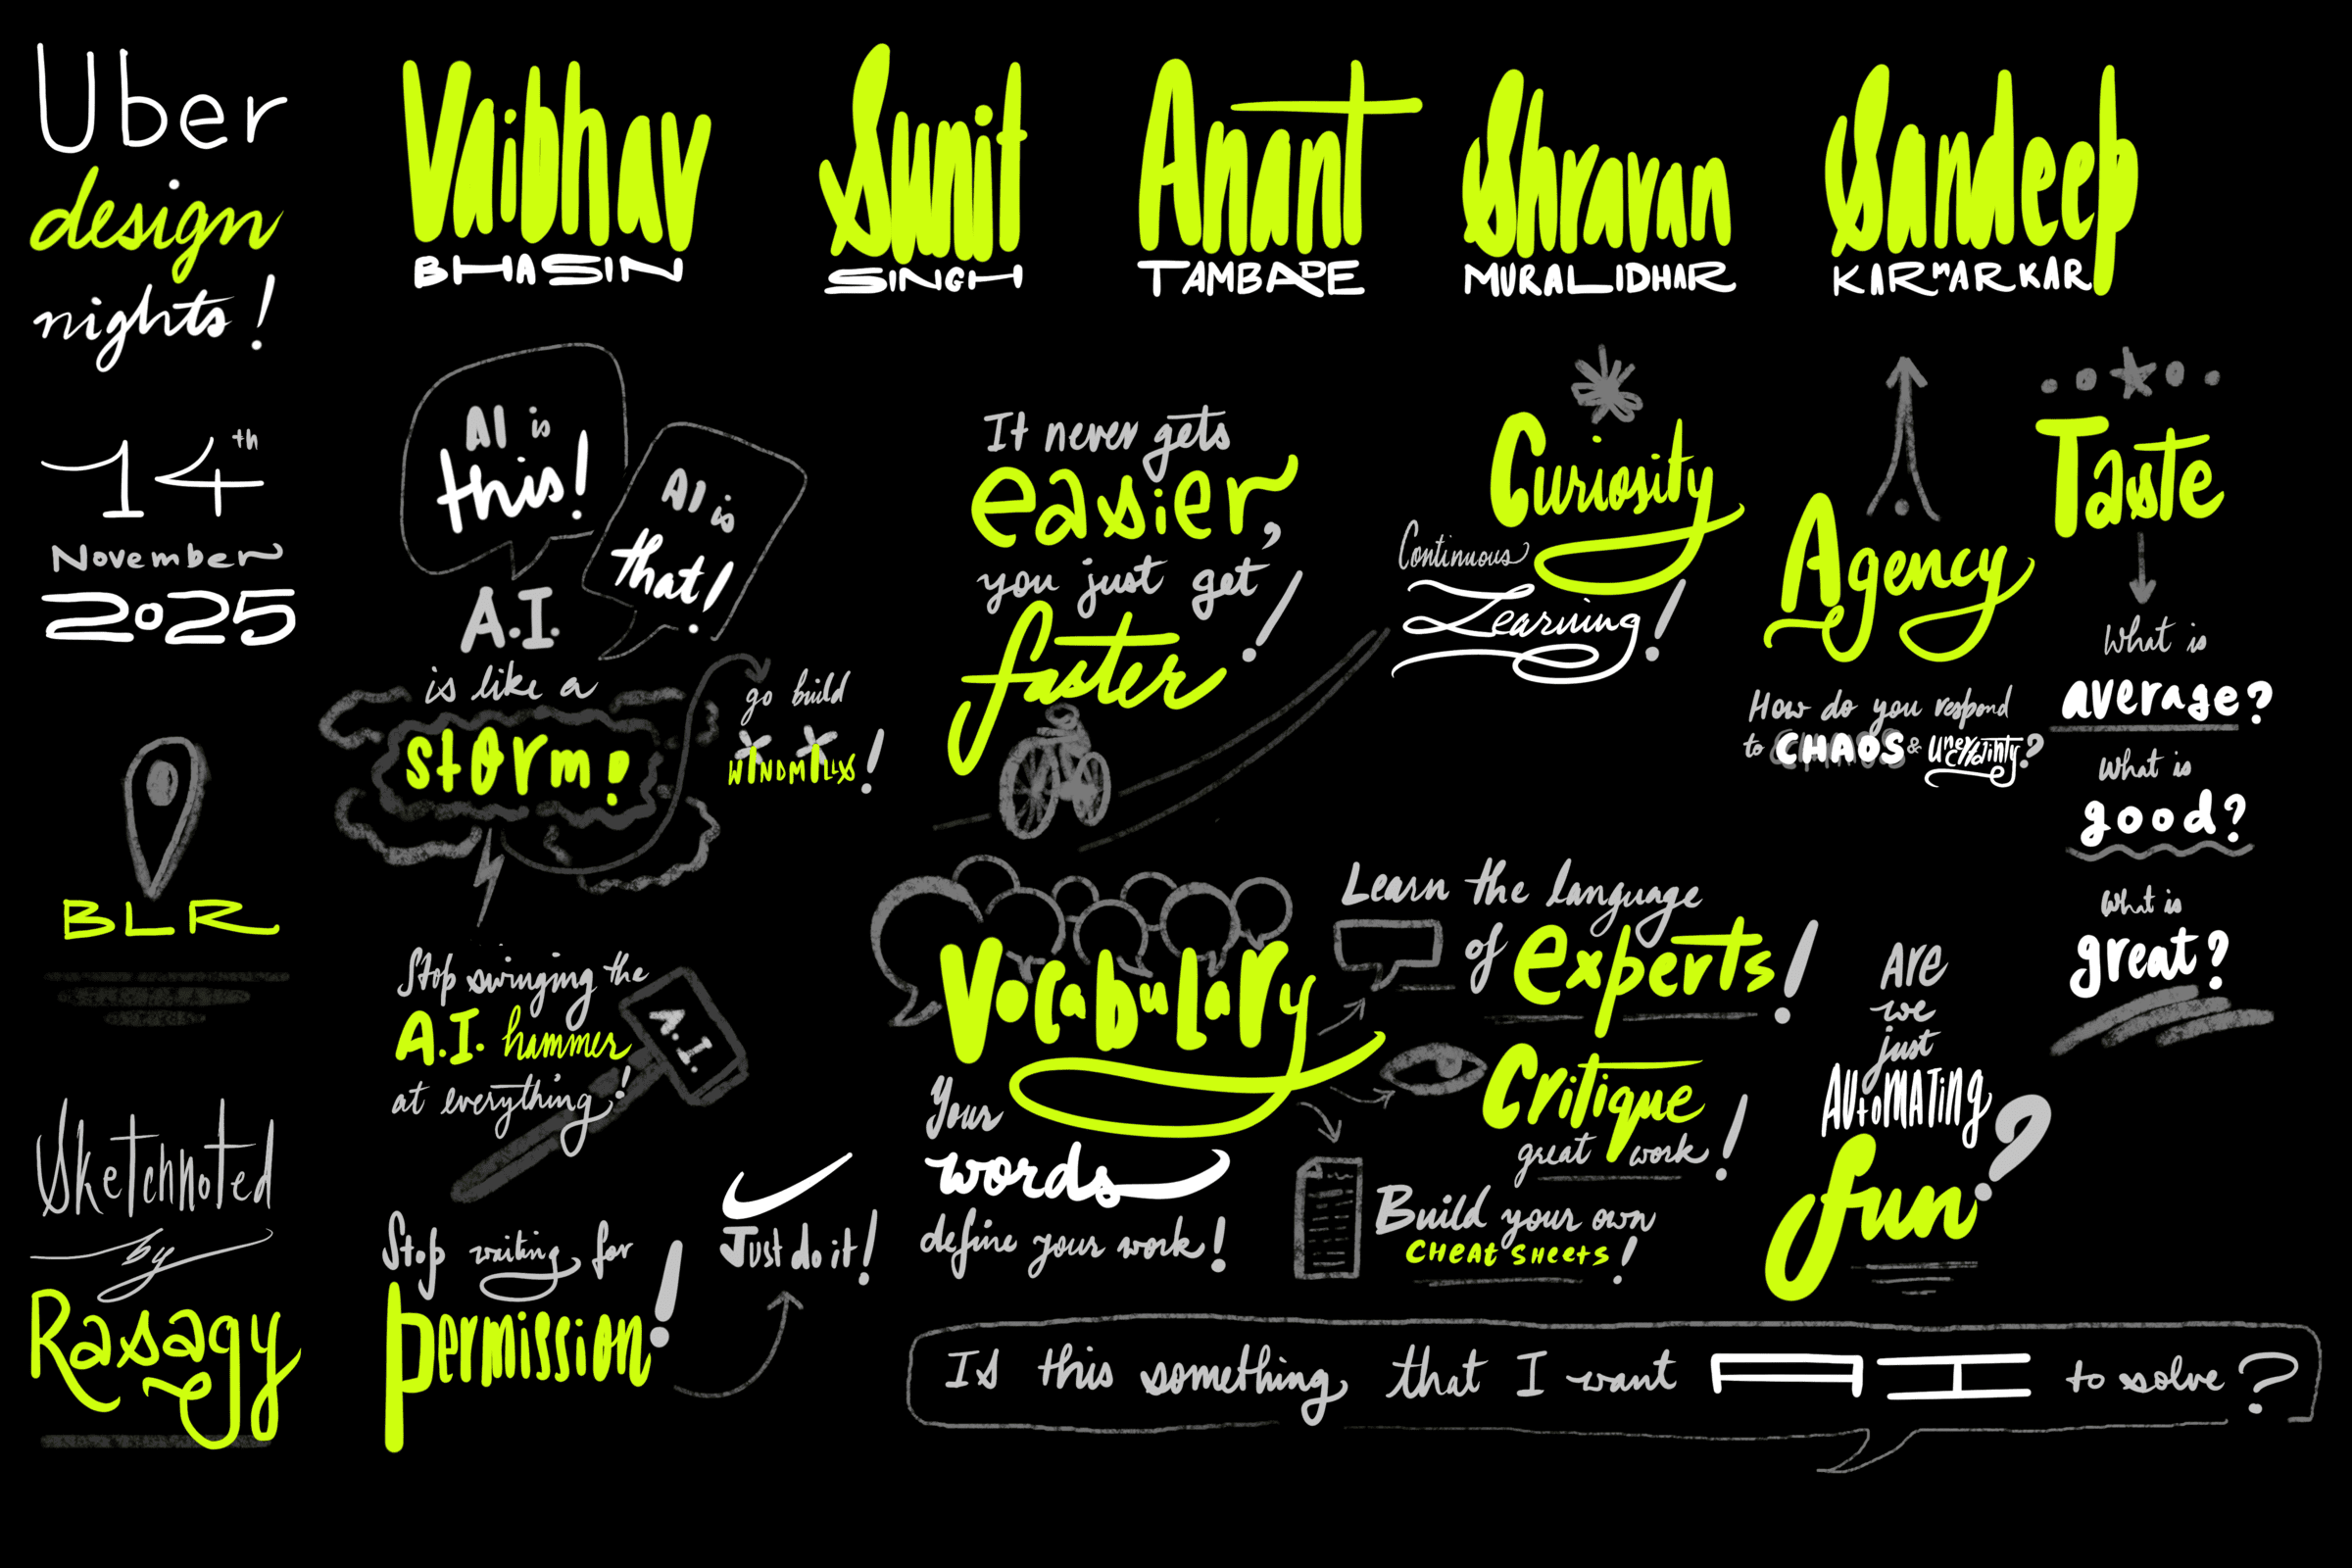 Uber
design
nights!
14th
November
2025
BLR
Sketchnoted
by
Rasagy
Vaibhav
BHASIN
Sunit
SINGH
Anant
TAMBADE
Shravan
MURALIDHAR
Sandeep
KARMARKAR
AI is
this!
AI is
that!
A.I.
is like a
storm!
go build
WINDMILLS!
Stop swinging the
A.I. hammer
at everything!
A.I.
Stop waiting for
permission!
Just do it!
It never gets
easier,
you just get
faster!
Curiosity
Continuous
Learning!
Agency
How do you respond
to CHAOS & Uncertainty?
Taste
What is
average?
What is
good?
What is
great?
Vocabulary
Your
words
define your work!
Learn the language
of experts!
Critique
great work!
Build your own
CHEAT SHEETS!
Are
we
just
AUTOMATING
fun?
Is this something that I want AI to solve?